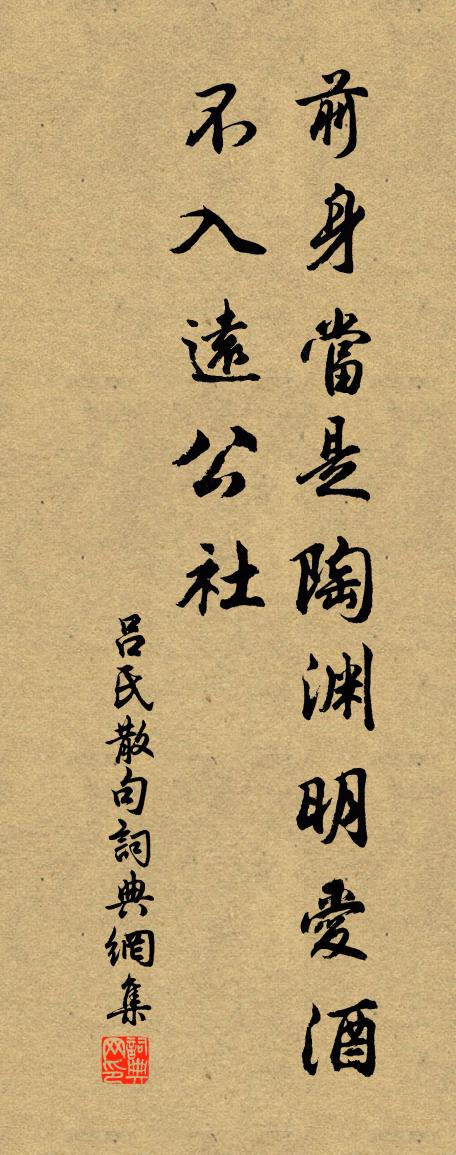 前身當是陶渊明愛酒
不入遠公社
吕氏散句詞典網集
詞典网印